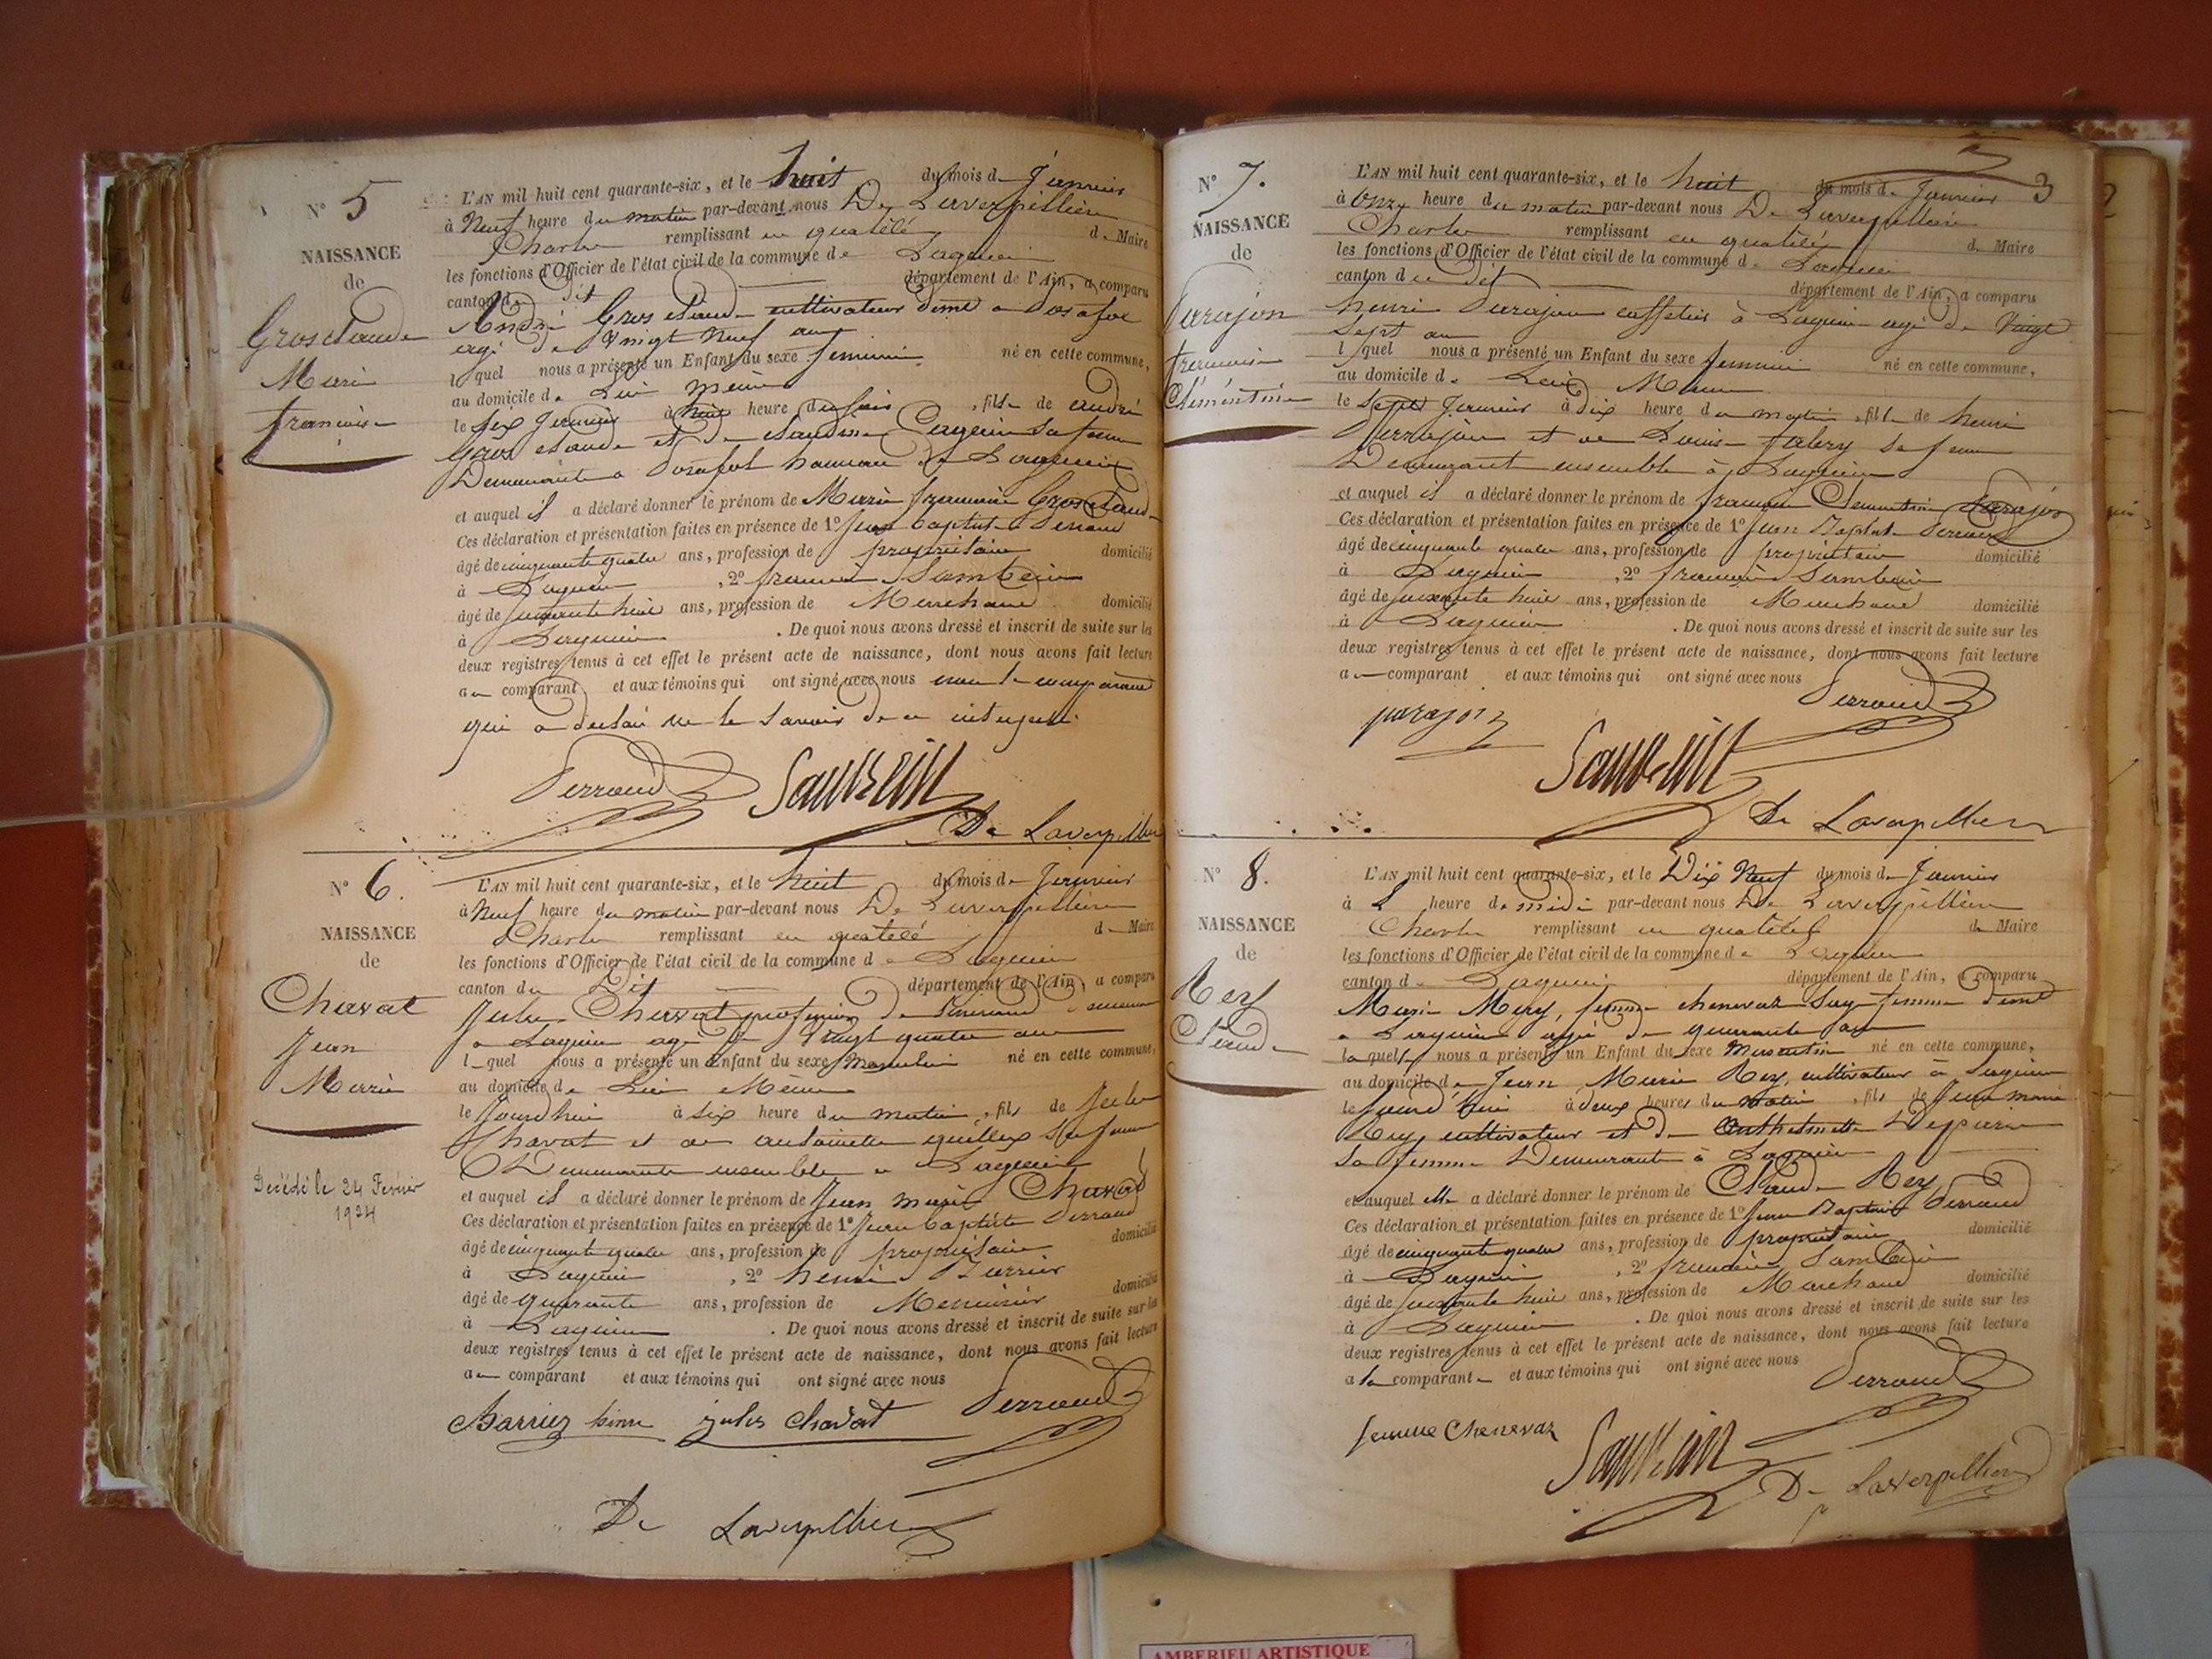 N° 5
NAISSANCE
de
Grosclaude
Marie
françoise
L'AN mil huit cent quarante-six, et le huit du mois de Janvier
à Neuf heure du matin par-devant nous De Laverpillière
Charles remplissant en qualité de Maire
les fonctions d'Officier de l'état civil de la commune de Lagnieu
canton du dit département de l'Ain, a comparu
André Grosclaude cultivateur demt a Posafol
agé de Vingt Neuf ans
lequel nous a présenté un Enfant du sexe feminin né en cette commune,
au domicile de Lui même
le six Janvier à huit heure du soir, fille de andré
Grosclaude et de claudine sa femme
Demeurante a Posafol hameau de Lagnieu
et auquel il a déclaré donner le prénom de Marie françoise Grosclaude
Ces déclaration et présentation faites en présence de 1° Jean Baptiste Perraud
âgé de cinquante quatre ans, profession de propriétaire domicilié
à Lagnieu, 2° françois Sambein
âgé de soixante huit ans, profession de Marchand domicilié
à Lagnieu. De quoi nous avons dressé et inscrit de suite sur les
deux registres tenus à cet effet le présent acte de naissance, dont nous avons fait lecture
au comparant et aux témoins qui ont signé avec nous non le comparant
qui a déclaré ne le savoir de ce interpellé.
Perraud Sambein
De Laverpillière
N° 6.
NAISSANCE
de
Chavat
Jean
Marie
Decédé le 24 Fevrier
1924
L'AN mil huit cent quarante-six, et le huit du mois de Janvier
à Neuf heure du matin par-devant nous De Laverpillière
Charles remplissant en qualité de Maire
les fonctions d'Officier de l'état civil de la commune de Lagnieu
canton du Dit département de l'Ain, a comparu
Jules Chavat professeur de
a Lagnieu agé de Vingt quatre ans
lequel nous a présenté un Enfant du sexe Masculin né en cette commune,
au domicile de Lui Même
le Jourdhui à six heure du matin, fils de Jules
Chavat et de antoinette sa femme
Demeurante ensemble a Lagnieu
et auquel il a déclaré donner le prénom de Jean marie Chavat
Ces déclaration et présentation faites en présence de 1° Jean Baptiste Perraud
âgé de cinquante quatre ans, profession de propriétaire domicilié
à Lagnieu, 2° henri Barrier
âgé de quarante ans, profession de Menuisier domicilié
à Lagnieu. De quoi nous avons dressé et inscrit de suite sur les
deux registres tenus à cet effet le présent acte de naissance, dont nous avons fait lecture
au comparant et aux témoins qui ont signé avec nous
Barrier henri jules Chavat Perraud
De Laverpillière
3
N° 7.
NAISSANCE
de
Parajon
francoise
Clémentine
L'AN mil huit cent quarante-six, et le huit du mois de Janvier
à Onze heure du matin par-devant nous De Laverpillière
Charles remplissant en qualité de Maire
les fonctions d'Officier de l'état civil de la commune de Lagnieu
canton du dit département de l'Ain, a comparu
henri Parajon caffetier à Lagnieu agé de Vingt
Sept ans
lequel nous a présenté un Enfant du sexe feminin né en cette commune,
au domicile de Lui Même
le Sept Janvier à dix heure du matin, fille de henri
Parrajon et de Louise sa femme
Demeurant ensemble à Lagnieu
et auquel il a déclaré donner le prénom de francoise Clementine Parajon
Ces déclaration et présentation faites en présence de 1° Jean Baptiste Perraud
âgé de cinquante quatre ans, profession de propriétaire domicilié
à Lagnieu, 2° françois Sambein
âgé de soixante huit ans, profession de Marchand domicilié
à Lagnieu. De quoi nous avons dressé et inscrit de suite sur les
deux registres tenus à cet effet le présent acte de naissance, dont nous avons fait lecture
au comparant et aux témoins qui ont signé avec nous
parajon Perraud
Sambein
De Laverpillière
N° 8.
NAISSANCE
de
Rey
Claude
L'AN mil huit cent quarante-six, et le Dix Neuf du mois de Janvier
à heure de midi par-devant nous De Laverpillière
Charles remplissant en qualité de Maire
les fonctions d'Officier de l'état civil de la commune de Lagnieu
canton de Lagnieu département de l'Ain, a comparu
Marie Mery, femme chenevaz Sage femme demt
a Lagnieu agée de quarante ans
laquelle nous a présenté un Enfant du sexe Masculin né en cette commune,
au domicile de Jean Marie Rey, cultivateur à Lagnieu
le Jourd'hui à deux heures du matin, fils de Jean marie
Rey cultivateur et de
sa femme Demeurante à Lagnieu
et auquel elle a déclaré donner le prénom de Claude Rey
Ces déclaration et présentation faites en présence de 1° Jean Baptiste Perraud
âgé de cinquante quatre ans, profession de propriétaire domicilié
à Lagnieu, 2° françois Sambein
âgé de soixante huit ans, profession de Marchand domicilié
à Lagnieu. De quoi nous avons dressé et inscrit de suite sur les
deux registres tenus à cet effet le présent acte de naissance, dont nous avons fait lecture
a la comparante et aux témoins qui ont signé avec nous
Perraud
femme Chenevaz Sambein
De Laverpillière
AMBERIEU ARTISTIQUE